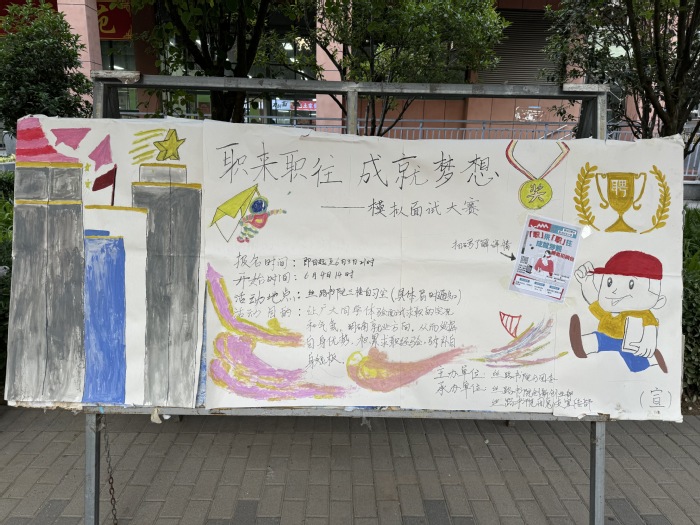 职来职往 成就梦想
——模拟面试大赛
奖
聘
扫码了解详情
报名时间：即日起至6月7日21时
开始时间：6月9日14时
活动地点：丝路书院三楼自习室（具体另时通知）
活动目的：让广大同学体验面试求职的
和气氛，明确就业方向，从而发掘
自身优势，积累求职经验，弥补自
身短板。
主办单位：丝路书院团委
承办单位：丝路书院
丝路书院宣传部
（宣）